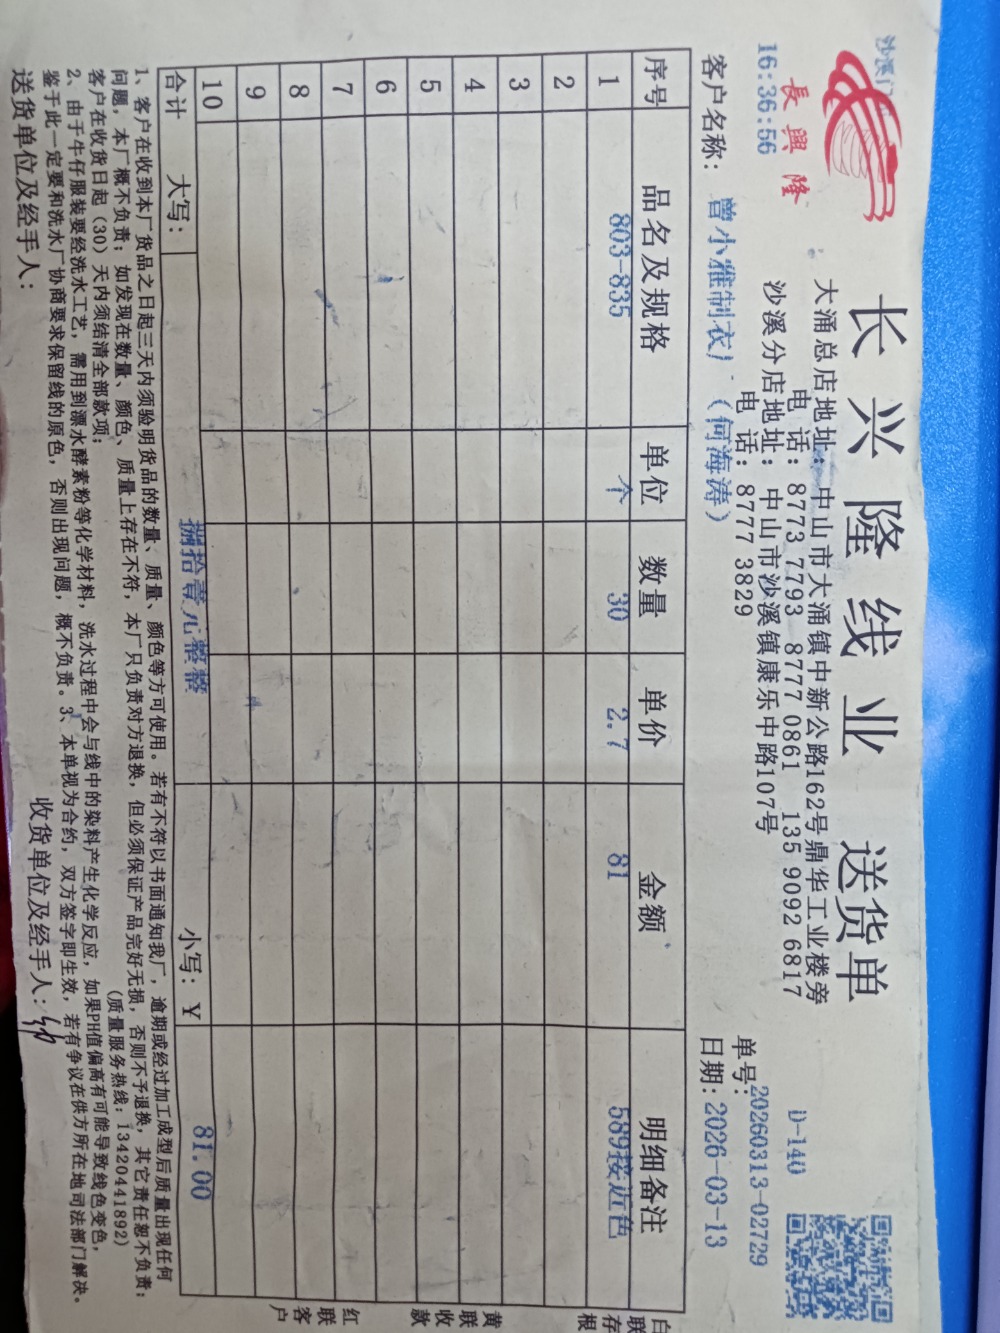 沙溪门
16:36:56
長興隆
长兴隆线业 送货单
大涌总店地址：中山市大涌镇中新公路162号鼎华工业楼旁
电 话：8773 7793 8777 0861 135 9092 6817
沙溪分店地址：中山市沙溪镇康乐中路107号
电 话：8777 3829
D-140
单号：20260313-02729
客户名称：曾小雅制衣厂（何海涛）
日期：2026-03-13
序号 品名及规格 单位 数量 单价 金额 明细备注
1 803-835 个 30 2.7 81 589接近色
2
3
4
5
6
7
8
9
10
合计 大写： 捌拾壹元整整 小写：¥ 81.00
白联存根
黄联收款
红联客户
1、客户在收到本厂货品之日起三天内须验明货品的数量、质量、颜色等方可使用。若有不符以书面通知我厂，逾期或经过加工成型后质量出现任何
问题，本厂概不负责；如发现在数量、颜色、质量上存在不符，本厂只负责对方退换，但必须保证产品完好无损，否则不予退换，其它责任恕不负责；
客户在收货日起（30）天内须结清全部款项；（质量服务热线：13420441892）
2、由于牛仔服装要经洗水工艺，需用到漂水酵素粉等化学材料，洗水过程中会与线中的染料产生化学反应，如果PH值偏高有可能导致线色变色，
鉴于此一定要和洗水厂协商要求保留线的原色，否则出现问题，概不负责。3、本单视为合约，双方签字即生效，若有争议在供方所在地司法部门解决。
送货单位及经手人： 收货单位及经手人：